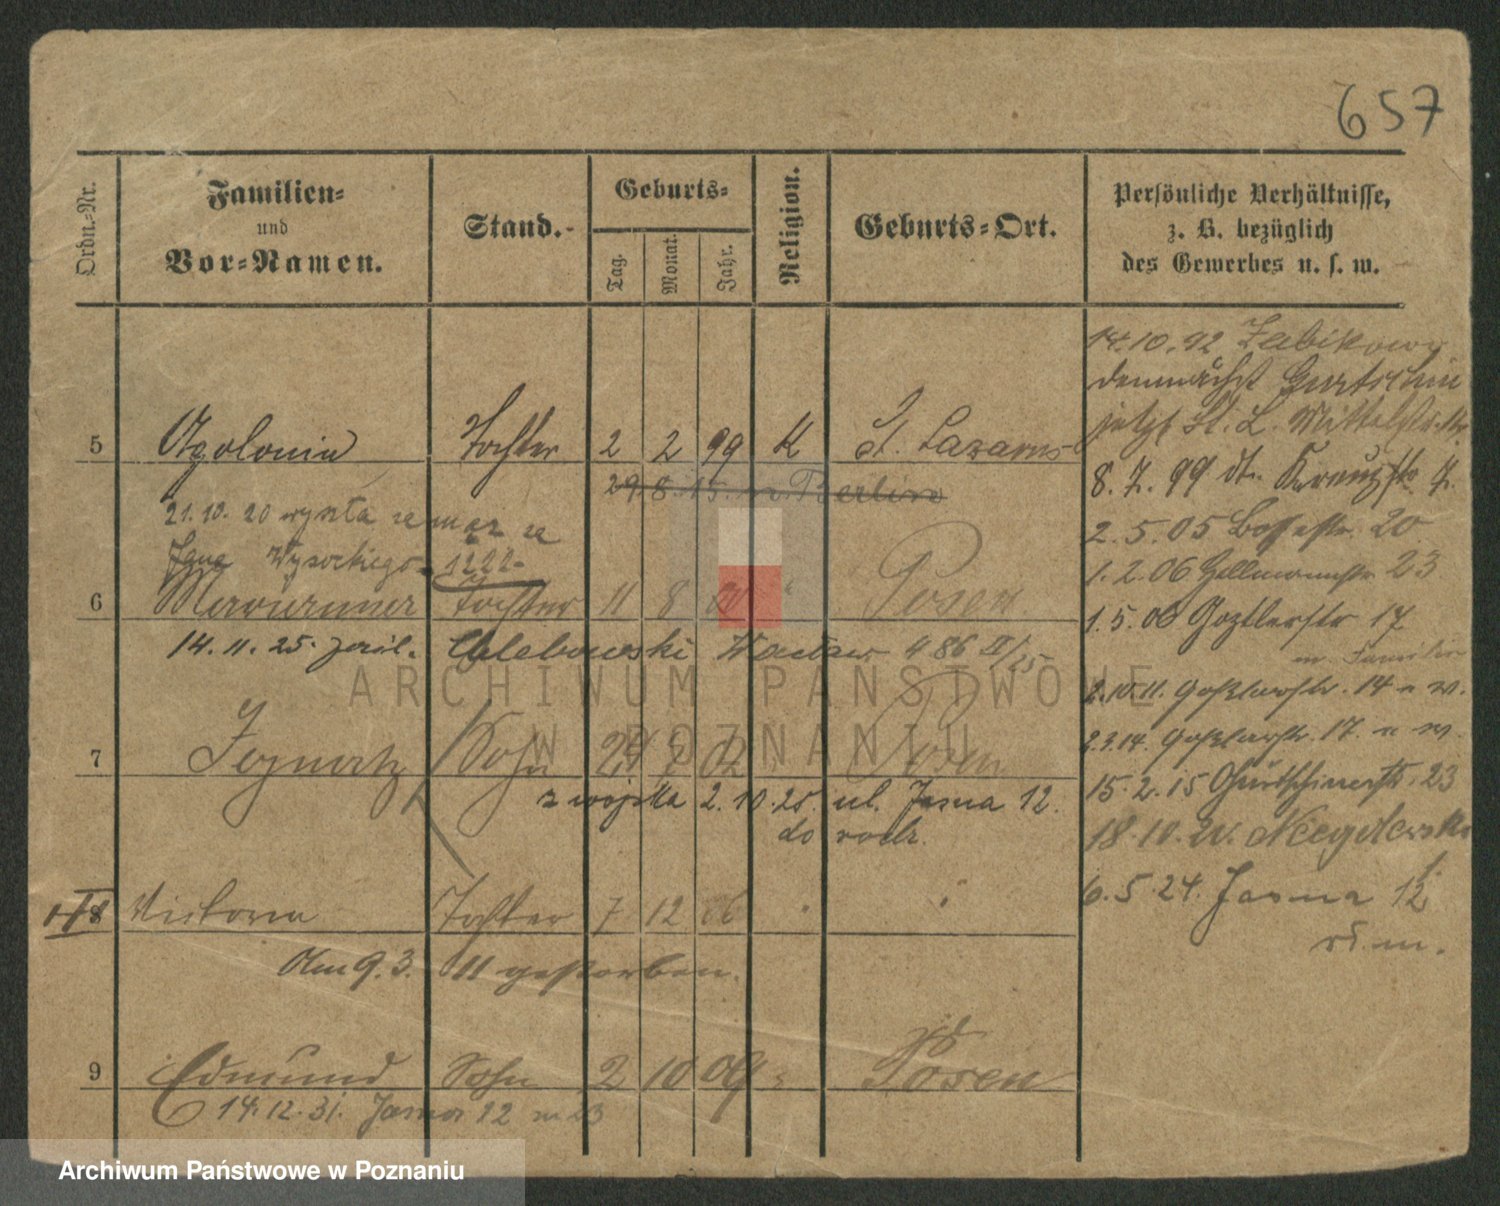 657
Ordn.-Nr.
Familien-
und
Vor-Namen.
Stand.
Geburts-
Tag.
Monat.
Jahr.
Religion.
Geburts-Ort.
Persönliche Verhältnisse,
z. B. bezüglich
des Gewerbes u. s. w.
14.10.92 Zabikowo
demnächst Gurtschin
jetzt St. L. Mittelstr.
5 Apolonia Tochter 2 2 99 K St. Lazarus
29.8.15. n. Berlin
8.7.99 dt. Kreuzstr. 7.
21.10.20 wyszła za mąż za
2.5.05 20
Jana Wysockiego 1222
1.2.06 23
6 Marianna Tochter 11 8 Posen
1.5.06 17
14.11.25. Chlebowski Wacław 486 II/25
m. Familie
2.10.11. Goßlerstr. 14 n w.
7 Ignatz Sohn Posen
2.3.14. Goßlerstr. 17. n w.
z wojska 2.10.25 ul. Jasna 12.
15.2.15 Gurtschinerstr. 23
do rodz.
18.10.20. Niegolewskich
8 Victoria Tochter 7 12 06
6.5.24. Jasna 12
Am 9.3.11 gestorben.
9 Edmund Sohn 2 10 09 Posen
14.12.31. Jasna 12 m 23
ARCHIWUM PAŃSTWOWE
W POZNANIU
Archiwum Państwowe w Poznaniu